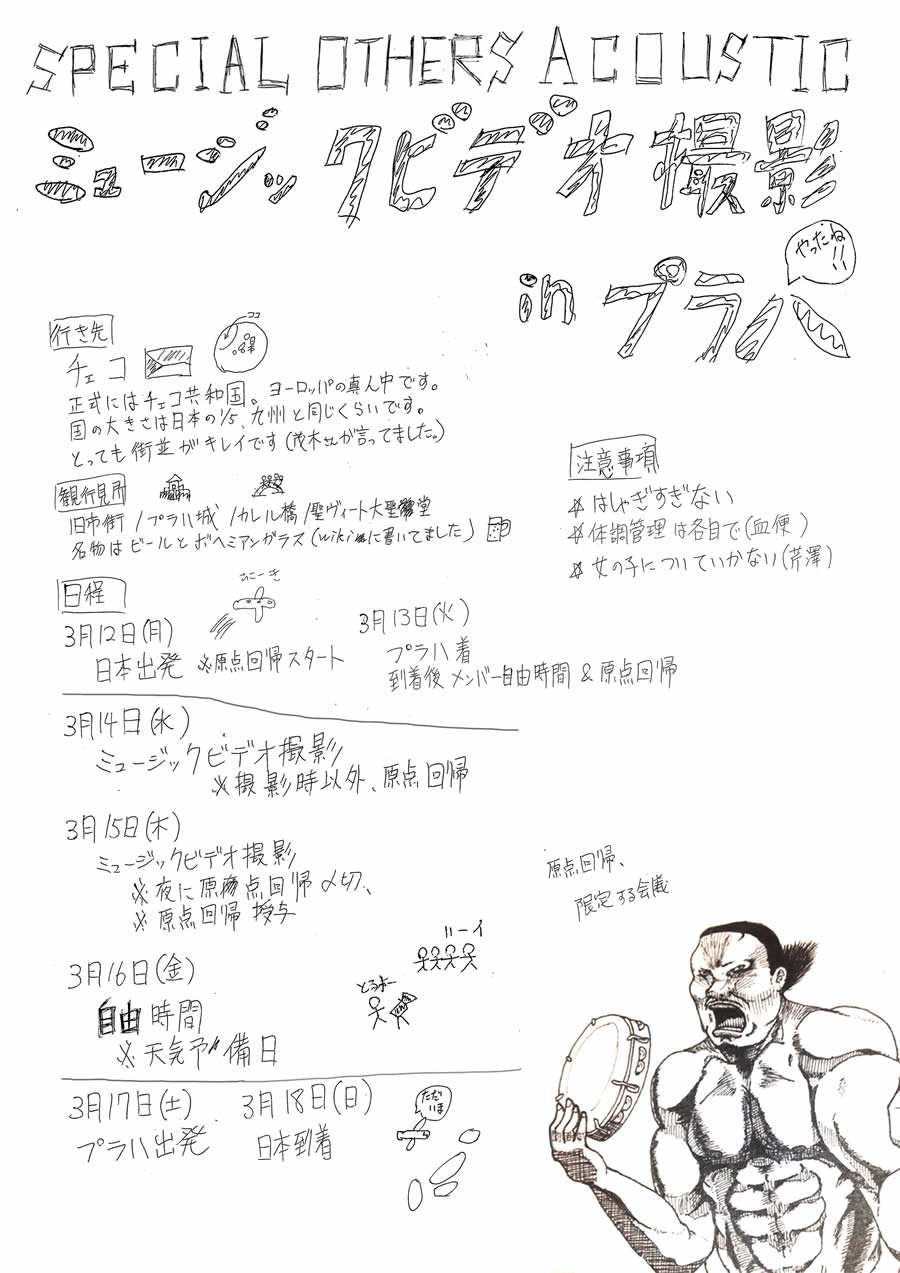 SPECIAL OTHERS ACOUSTIC
ミュージックビデオ撮影
in プラハ
やったね!!
行き先
チェコ
ココ
正式にはチェコ共和国。ヨーロッパの真ん中です。
国の大きさは日本の1/5、九州と同じくらいです。
とっても街並がキレイです(茂木さんが言ってました。)
観行見所
旧市街/プラハ城/カレル橋/聖ヴィート大聖堂
名物はビールとボヘミアンガラス(wikiに書いてました)
注意事項
☆はしゃぎすぎない
☆体調管理は各自で(血便)
☆女の子についていかない(芹澤)
日程
3月12日(月)
日本出発 ※原点回帰スタート
3月13日(火)
プラハ着
到着後メンバー自由時間&原点回帰
3月14日(水)
ミュージックビデオ撮影
※撮影時以外、原点回帰
3月15日(木)
ミュージックビデオ撮影
※夜に原点回帰〆切、
※原点回帰授与
3月16日(金)
自由時間
※天気予備日
とるよー
ハーイ
3月17日(土)
プラハ出発
3月18日(日)
日本到着
ただいま
原点回帰、
限定する会議